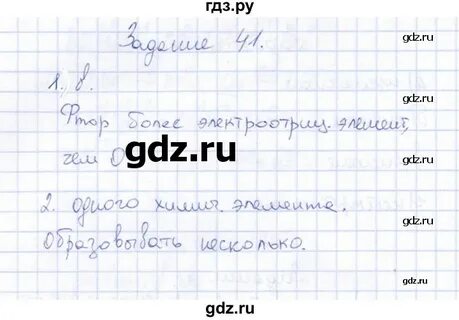 гдз.ру
gdz.ru
gdz.ru
Задание 41.
1. в.
Фтор более электроотриц. элемент,
чем O
gdz.ru
2. одного химич. элемента.
Образовывать несколько.
gdz.ru
gdz.ru